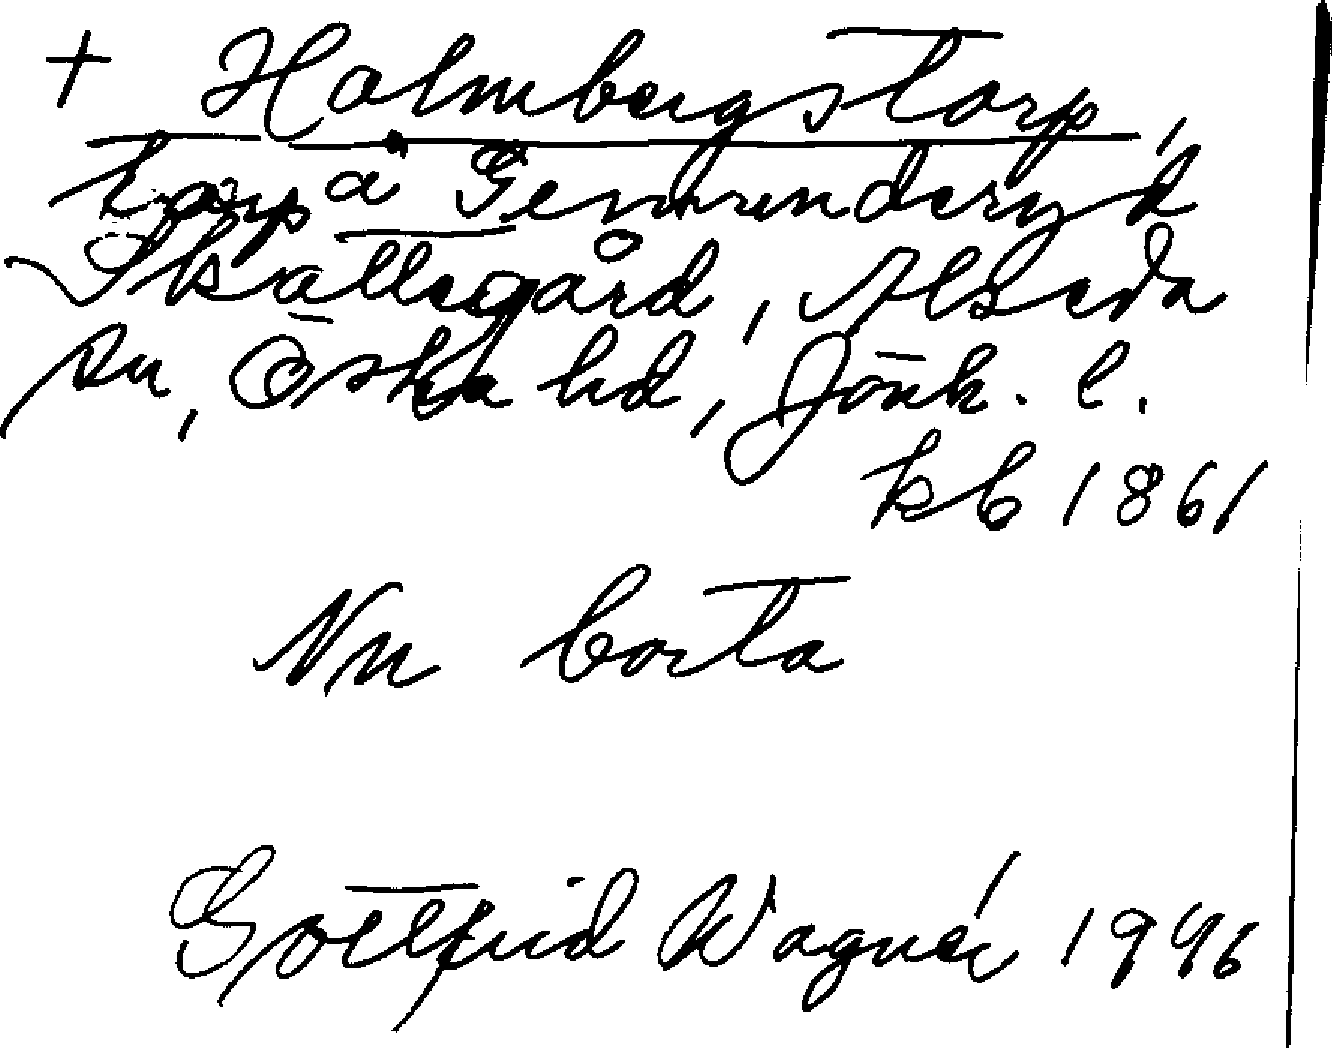 + Holmbergstorp,
torp å Gemmunderyd
Skattegård, Alseda
sn, Östra hd, Jönk. l.
kb 1861
Nu borta
Gottfrid Wagnér 1946